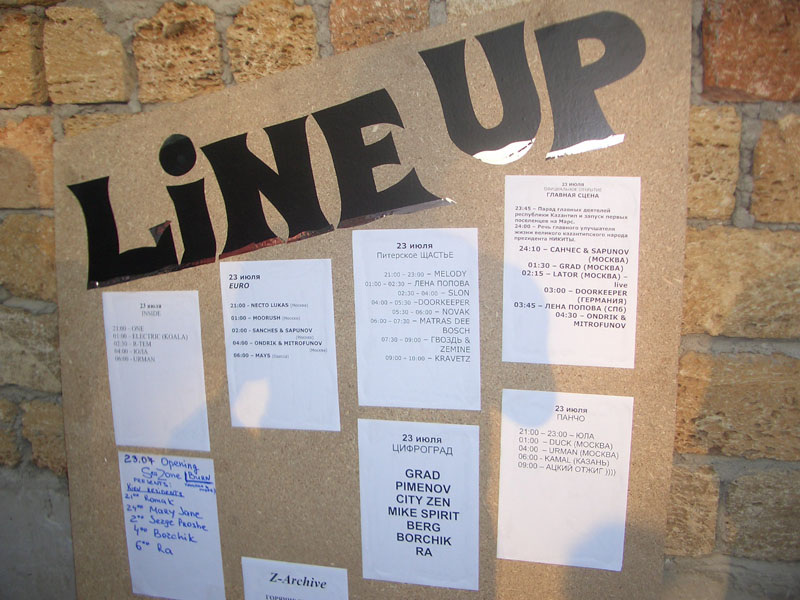 LiNE UP
23 июля
INSIDE
21:00 - ONE
01:00 - ELECTRIC (KOALA)
02:30 - R-TEM
04:00 - ЮЛА
06:00 - URMAN
23 июля
EURO
21:00 - NECTO LUKAS (Москва)
01:00 - MOORUSH (Москва)
02:00 - SANCHES & SAPUNOV
(Москва)
04:00 - ONDRIK & MITROFUNOV
(Москва)
06:00 - MAYS
23 июля
Питерское ЩАСТЬЕ
21:00 - 23:00 – MELODY
01:00 – 02:30 – ЛЕНА ПОПОВА
02:30 – 04:00 – SLON
04:00 – 05:30 -DOORKEEPER
05:30 - 06:00 – NOVAK
06:00 – 07:30 – MATRAS DEE
BOSCH
07:30 – 09:00 – ГВОЗДЬ &
ZEMINE
09:00 – 10:00 – KRAVETZ
23 ИЮЛЯ
ОФИЦИАЛЬНОЕ ОТКРЫТИЕ
ГЛАВНАЯ СЦЕНА
23:45 – Парад главных деятелей
республики Казантип и запуск первых
поселенцев на Марс.
24:00 – Речь главного улучшателя
жизни великого казантипского народа
президента НИКИТЫ.
24:10 – САНЧЕС & SAPUNOV
(МОСКВА)
01:30 – GRAD (МОСКВА)
02:15 – LATOR (МОСКВА) –
live
03:00 – DOORKEEPER
(ГЕРМАНИЯ)
03:45 – ЛЕНА ПОПОВА (СПб)
04:30 – ONDRIK &
MITROFUNOV
23.07 Opening
Zone BURN
PRESENTS:
KIEV RESIDENTS
21⁰⁰ Romak
24⁰⁰ Mary Jane
2⁰⁰ Serge Proshe
4⁰⁰ Borchik
6⁰⁰ Ra
23 июля
ЦИФРОГРАД
GRAD
PIMENOV
CITY ZEN
MIKE SPIRIT
BERG
BORCHIK
RA
23 июля
ПАНЧО
21:00 – 23:00 – ЮЛА
01:00 – DUCK (МОСКВА)
04:00 – URMAN (МОСКВА)
06:00 - KAMAL (КАЗАНЬ)
09:00 – АЦКИЙ ОТЖИГ ))))
Z-Archive